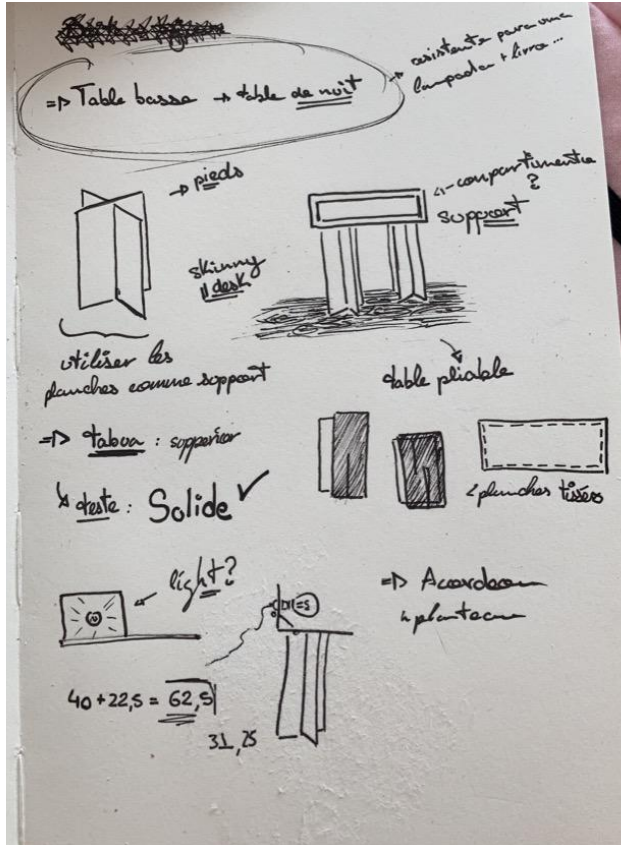 => Table basse → table de nuit
→ resistente para uma
lampada + livro...
→ pieds
compartimentia
?
support
skinny
desk
utiliser les
planches comme support
table pliable
=> taboa : supperior
↳ teste : Solide ✓
planches tissées
light?
=> Acordeon
↳ planteau
40 + 22,5 = 62,5
31,25